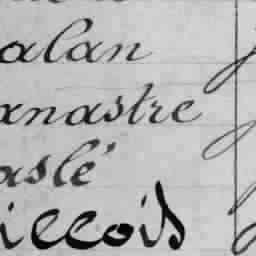 alan
anastre
aslé
illois